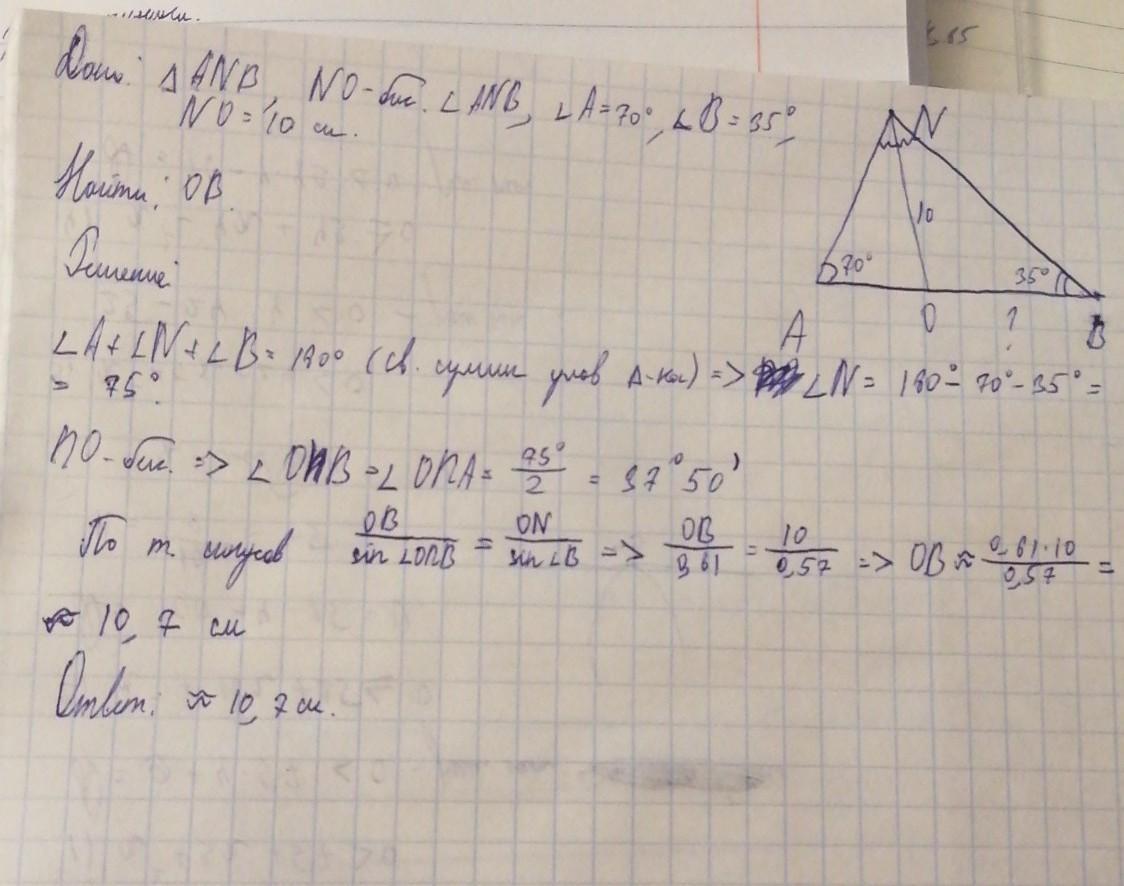 Дано: △ANB, NO-бис. ∠ANB, ∠A=70°, ∠B=35°,
NO=10 см.
Найти: OB.
Решение:
∠A+∠N+∠B=180° (св. суммы углов △-ка) => ∠N= 180°-70°-35°=
= 75°.
NO-бис. => ∠ONB=∠ONA= 75°/2 = 37°50'
По т. синусов OB/sin∠ONB = ON/sin∠B => OB/0,61 = 10/0,57 => OB≈ 0,61·10/0,57 =
≈ 10,7 см
Ответ: ≈ 10,7 см.
N
10
70°
35°
A
O
?
B